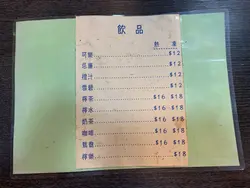 飲品
熱 凍
可樂 $12
忌廉 $12
橙汁 $12
雪碧 $12
檸茶 $16 $18
檸水 $16 $18
奶茶 $16 $18
咖啡 $16 $18
鴛鴦 $16 $18
檸樂 $18 $18